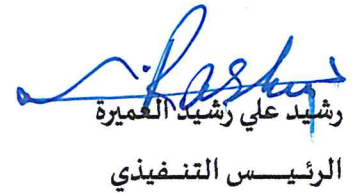 رشيد علي رشيد العميرة
الرئيس التنفيذي